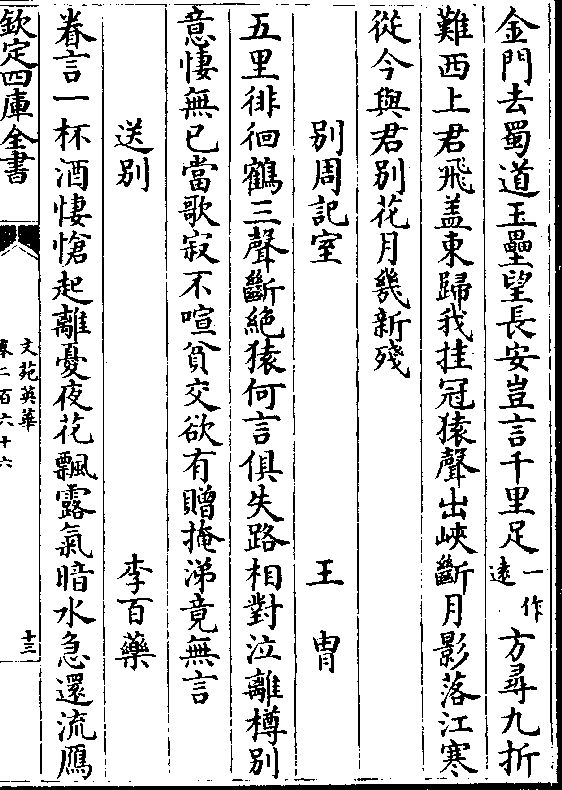 金門去蜀道玉壘望長安豈言千里足一作逺方尋九折
難西上君飛盖東歸我挂冠猿聲出峽斷月影落江寒
從今與君別花月㡬新殘
別周記室 王胄
五里徘徊鶴三聲斷絶猿何言俱失路相對泣離樽別
意悽無已當歌寂不喧貧交欲有贈掩涕竟無言
送別 李百藥
眷言一杯酒悽愴起離憂夜花飄露氣暗水急還流鴈
欽定四庫全書
文苑英華
卷二百六十六
十三